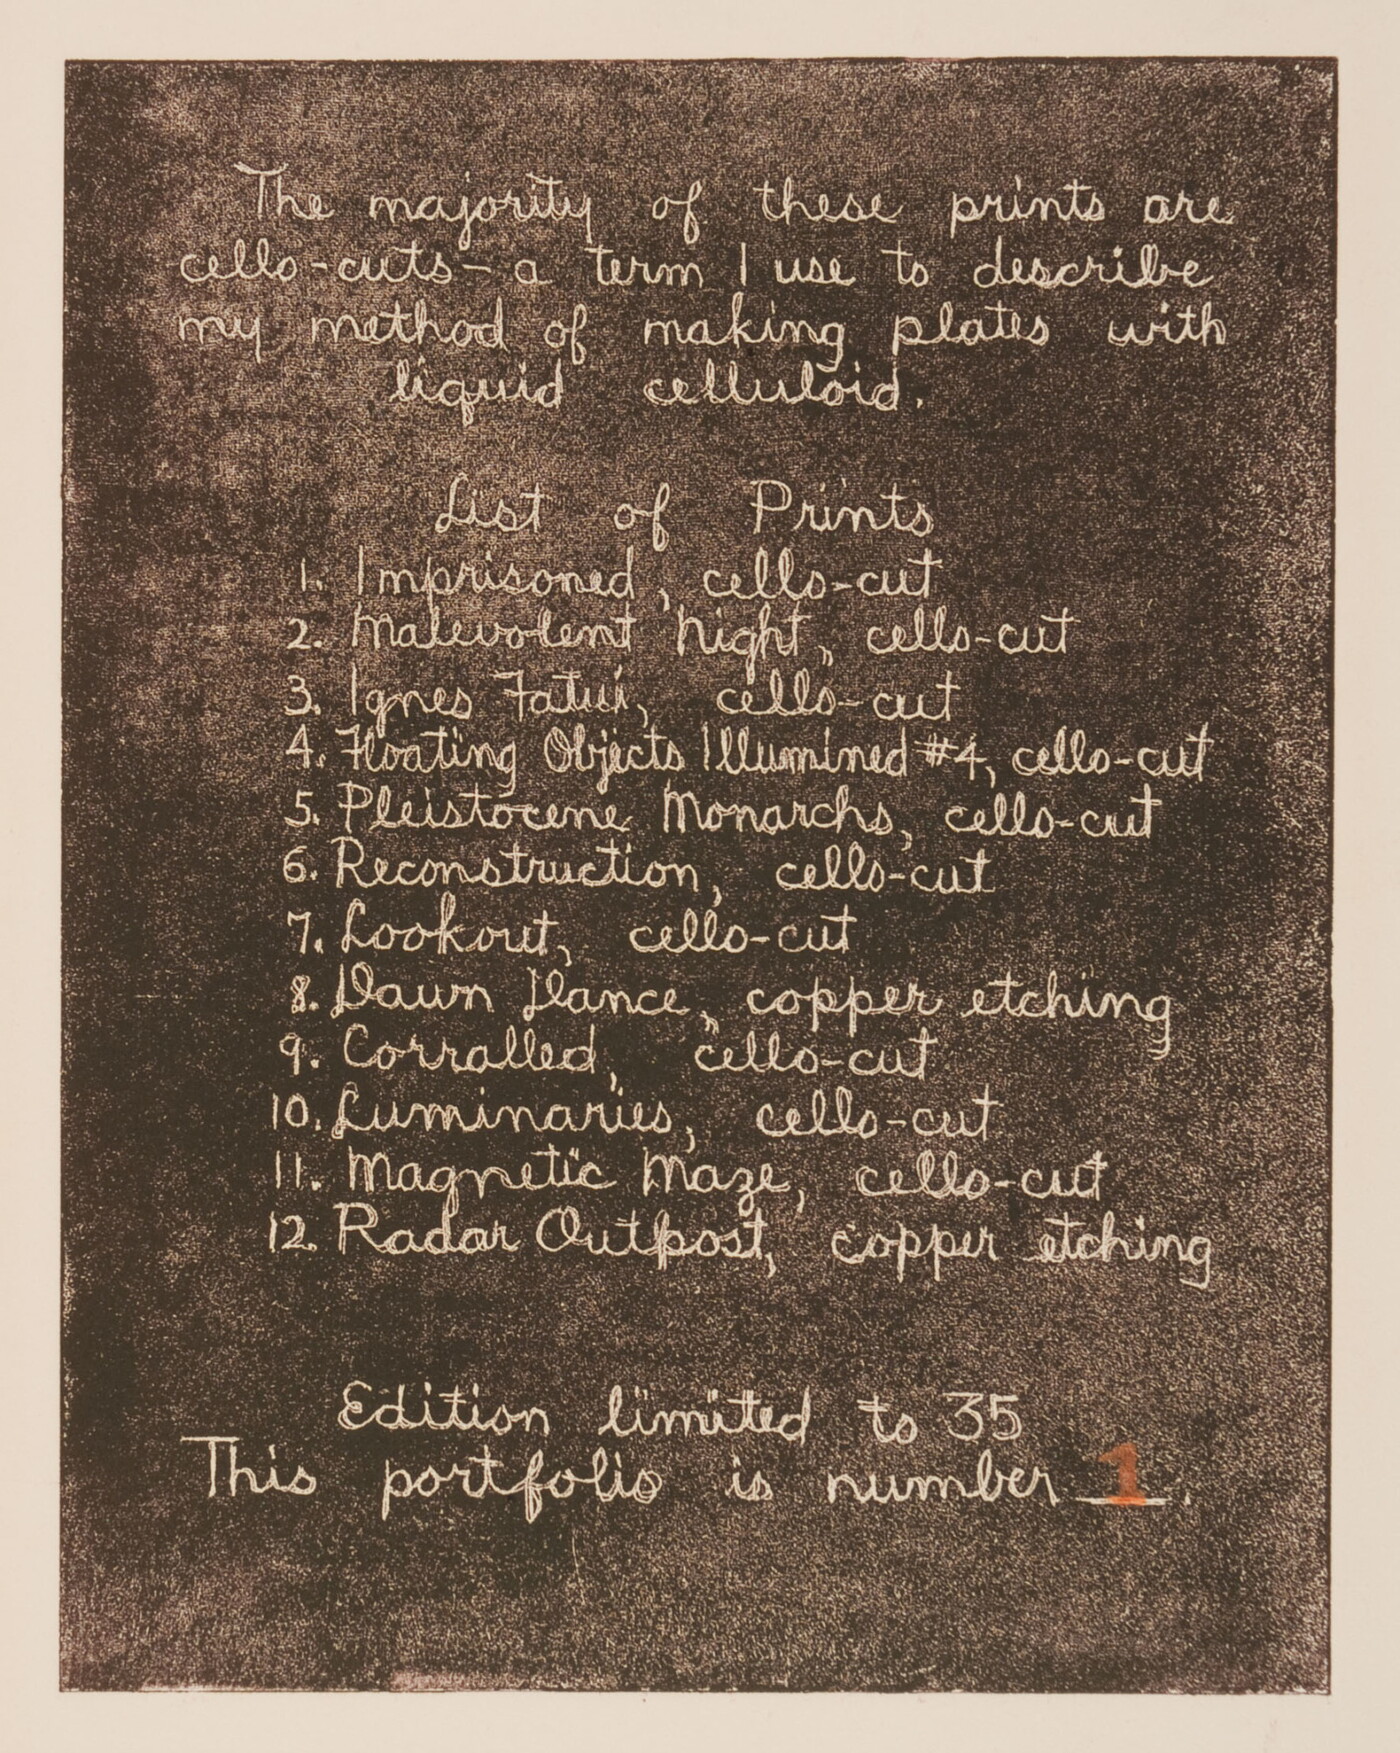 The majority of these prints are
cello-cuts - a term I use to describe
my method of making plates with
liquid celluloid.
List of Prints
1. Imprisoned, cello-cut
2. Malevolent Night, cello-cut
3. Ignes Fatui, cello-cut
4. Floating Objects Illumined #4, cello-cut
5. Pleistocene Monarchs, cello-cut
6. Reconstruction, cello-cut
7. Lookout, cello-cut
8. Dawn Dance, copper etching
9. Corralled, cello-cut
10. Luminaries, cello-cut
11. Magnetic Maze, cello-cut
12. Radar Outpost, copper etching
Edition limited to 35
This portfolio is number 1.